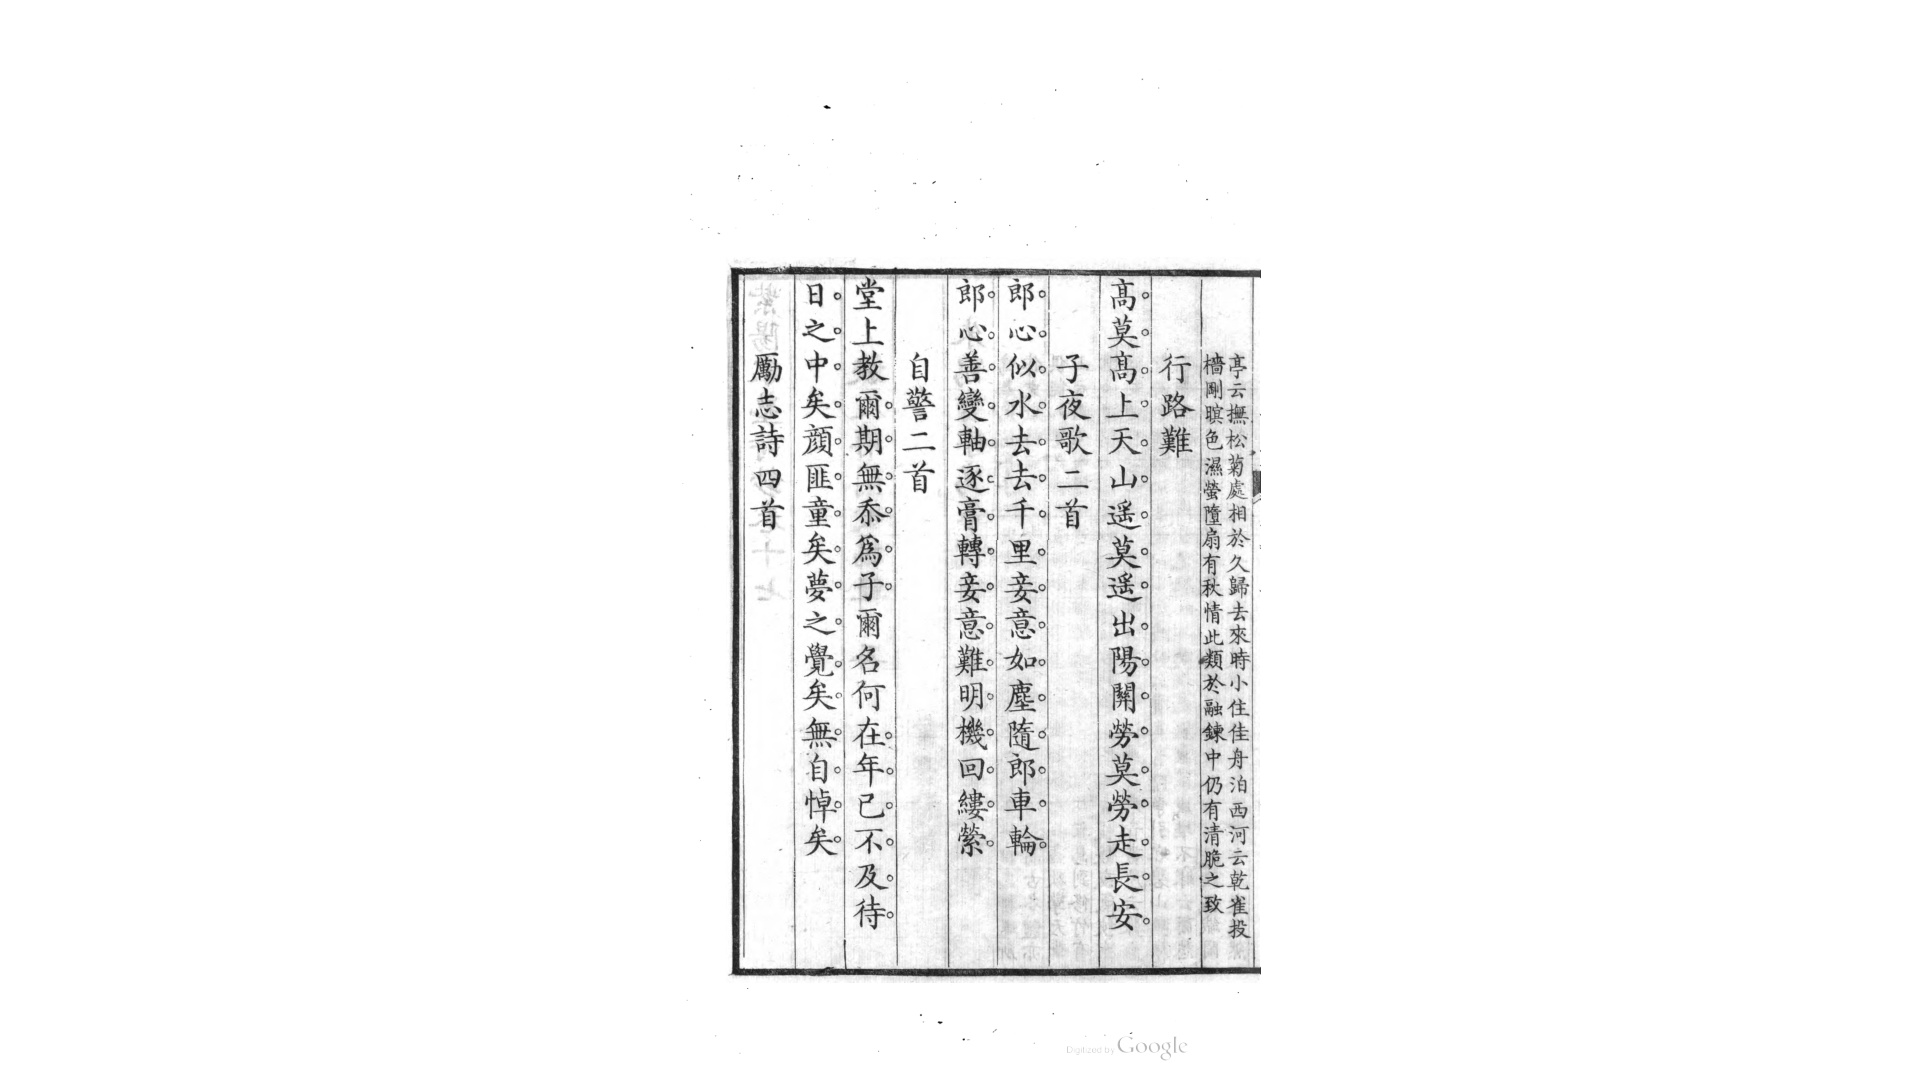 亭云撫松菊處相於久歸去來時小住佳舟泊西河云乾雀投
檣剛暝色濕螢墮扇有秋情此類於融鍊中仍有清脆之致
行路難
髙莫髙上天山遥莫遥出陽關勞莫勞走長安
子夜歌二首
郎心似水去去千里妾意如塵隨郎車輪
郎心善變軸逐膏轉妾意難明機回縷縈
自警二首
堂上教爾期無忝爲子爾名何在年已不及待
日之中矣顔匪童矣夢之覺矣無自悼矣
勵志詩四首
Digitized by Google